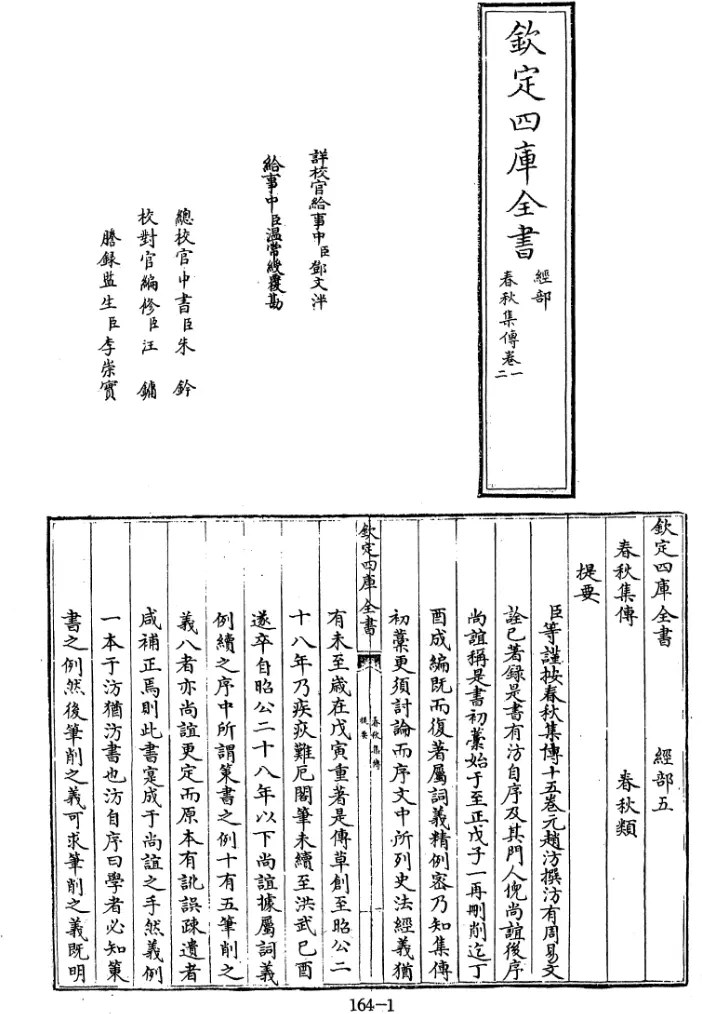 欽定四庫全書
經部
春秋集傳卷一
二
詳校官給事中臣鄭文泮
給事中臣温常綬覆勘
總校官中書臣朱鈐
校對官編修臣汪鏞
謄録監生臣李崇實
欽定四庫全書 經部五
春秋集傳 春秋類
提要
臣等謹按春秋集傳十五卷元趙汸撰汸有周易文
詮已著録是書有汸自序及其門人倪尚誼後序
尚誼稱是書初藁始于至正戊子一再刪削迄丁
酉成編既而復著屬詞義精例密乃知集傳
初藁更須討論而序文中所列史法經義猶
欽定四庫全書
春秋集傳
提要
一
有未至歲在戊寅重著是傳草創至昭公二
十八年乃疾疢難厄閣筆未續至洪武己酉
遂卒自昭公二十八年以下尚誼據屬詞義
例續之序中所謂策書之例十有五筆削之
義八者亦尚誼更定而原本有訛誤疎遺者
咸補正焉則此書寔成于尚誼之手然義例
一本于汸猶汸書也汸自序曰學者必知策
書之例然後筆削之義可求筆削之義既明
164-1